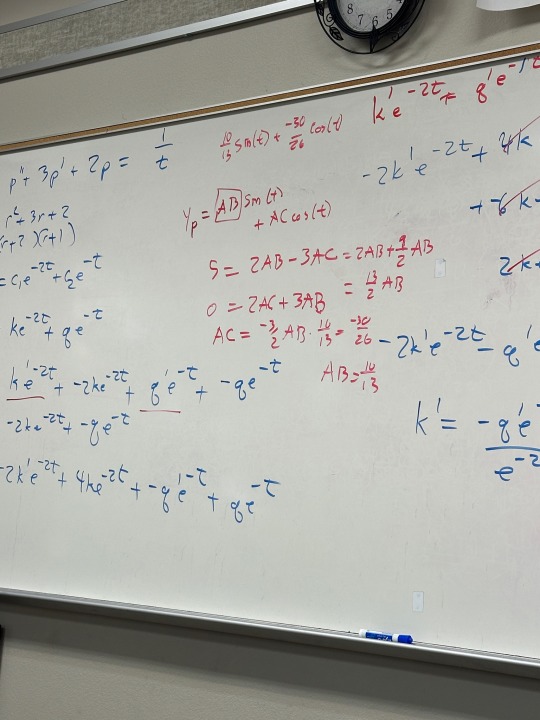 p'' + 3p' + 2p = 1/t
r² + 3r + 2
(r+2)(r+1)
= c₁e^-2t + c₂e^-t
ke^-2t + qe^-t
k'e^-2t + -2ke^-2t + q'e^-t + -qe^-t
-2ke^-2t + -qe^-t
-2k'e^-2t + 4ke^-2t + -q'e^-t + qe^-t
10/13 sin(t) + -30/26 cos(t)
yp = AB sin(t)
+ AC cos(t)
5 = 2AB - 3AC = 2AB + 9/2 AB
0 = 2AC + 3AB = 13/2 AB
AC = -3/2 AB · 10/13 = -30/26
AB = 10/13
k'e^-2t + q'e^-t
-2k'e^-2t + 4k
+ -6k
2k
-2k'e^-2t - q'e
k' = -q'e / e^-2